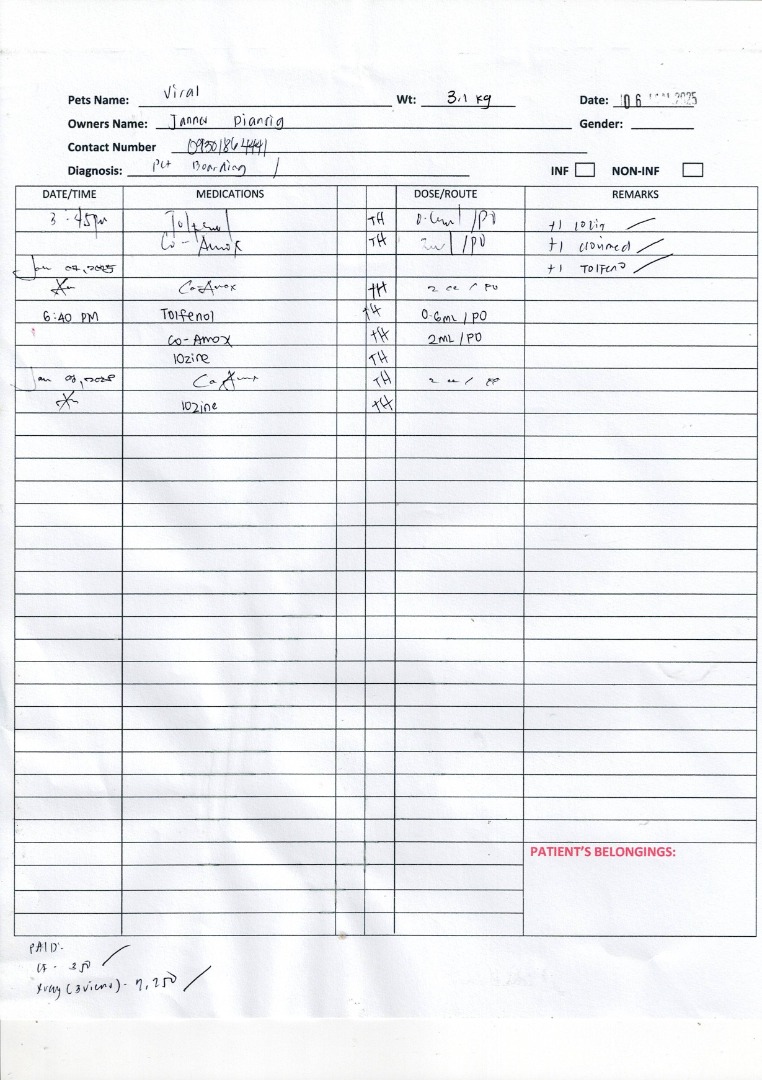 Pets Name: Viral Wt: 3.1 kg Date: 06 2025
Owners Name: Janner Gender:
Contact Number
Diagnosis: Pet Boarding INF NON-INF
DATE/TIME MEDICATIONS DOSE/ROUTE REMARKS
3:45pm Tolfenol TH 0.6ml /PO
Co-Amox TH 2ml /PO +1
+1 Tolfeno
Co-Amox TH 2 cc / PO
6:40 PM Tolfenol TH 0.6mL / PO
co-Amox TH 2mL / PO
10zine TH
Co-Amox TH 2 cc / PO
10zine TH
PATIENT'S BELONGINGS:
PAID:
- 350
Xray (3views) -